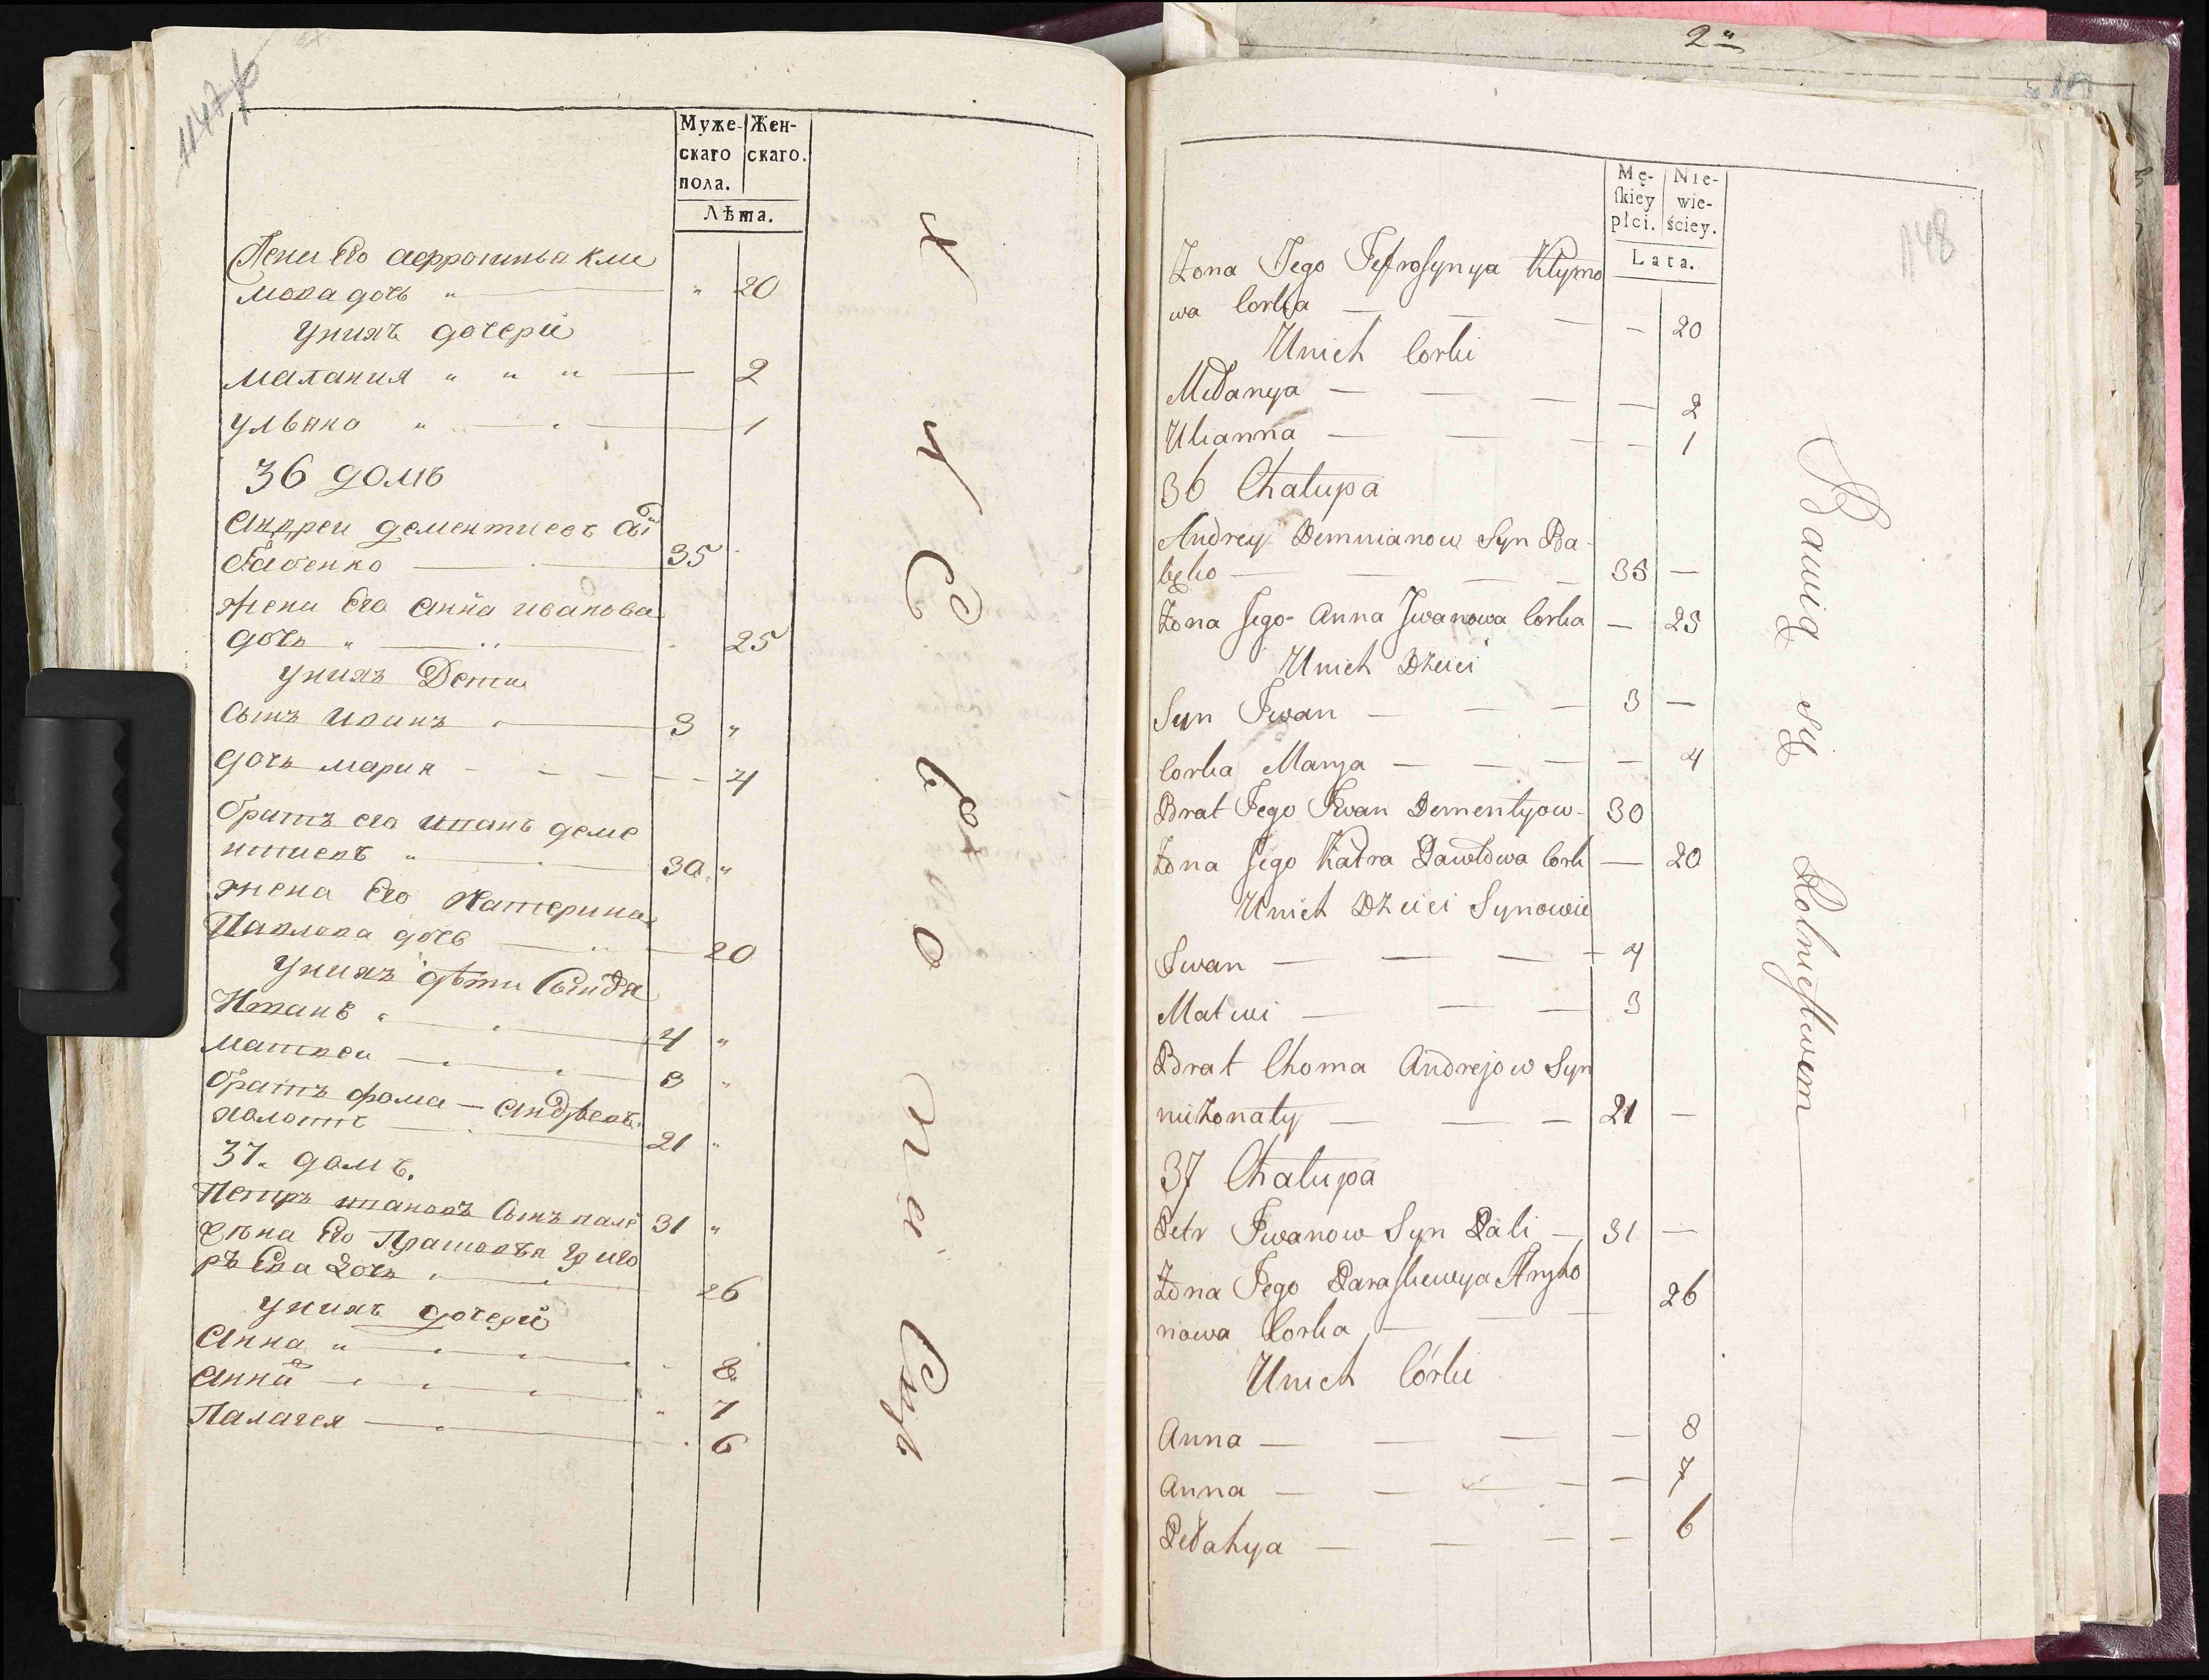 1147 об
Муже-
скаго
пола.
Жен-
скаго.
Лѣта.
Жена Его Аефросинья Кли
мова дочь " — " 20
Унихъ дочери
Малания " " " — 2
Ульяна " — 1
36 домъ
Андреи Дементиевъ
Бабенко — 35
Жена Его Анна Иванова
дочь " — 25
Унихъ Дети
Сынъ Иванъ — 3 "
дочь Мария — — — 4
братъ его Иванъ Деме
нтиевъ " — 30 "
жена Его Катерина
Павлова дочь — 20
Унихъ дѣти
Иванъ — 4 "
Матвеи — 3 "
братъ Фома — Андреевъ
холоть — 21 "
37. домъ.
Петръ Ивановъ Сынъ пале 31 "
жена Его Парасковья Григо
рьева дочь — 26
Унихъ дочери
Анна " — 8
Анна — 7
Палагея — 6
2
1148
Mę-
skiey
płci.
Nie-
wie-
ściey.
Lata.
Żona Jego Jefrosynya Klymo
wa Corka — — — — 20
Unich Corki
Mełanya — — — — 2
Ulianna — — — — 1
36 Chałupa
Andrey Demnianow Syn Ba-
beko — — — 35 —
Żona Jego Anna Jwanowa Corka — 25
Unich Dzieci
Syn Jwan — — — 3 —
Corka Marya — — — — 4
Brat Jego Jwan Dementyow - 30
Żona Jego Katra Pawłowa Cork — 20
Unich Dzieci Synowie
Jwan — — — 4
Matwi — — — 3
Brat Choma Andrejow Syn
nieżonaty — — — 21 —
37 Chałupa
Petr Jwanow Syn Pali — 31 —
Żona Jego Paraskewya Hryho
riowa Corka — — — 26
Unich Córki
Anna — — — — 8
Anna — — — — 7
Pełahya — — — — 6
Bawią się Rolnictwem